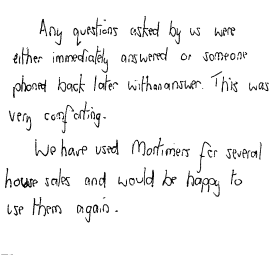 Any questions asked by us were
either immediately answered or someone
phoned back later with an answer. This was
very comforting.
We have used Mortimers for several
house sales and would be happy to
use them again.